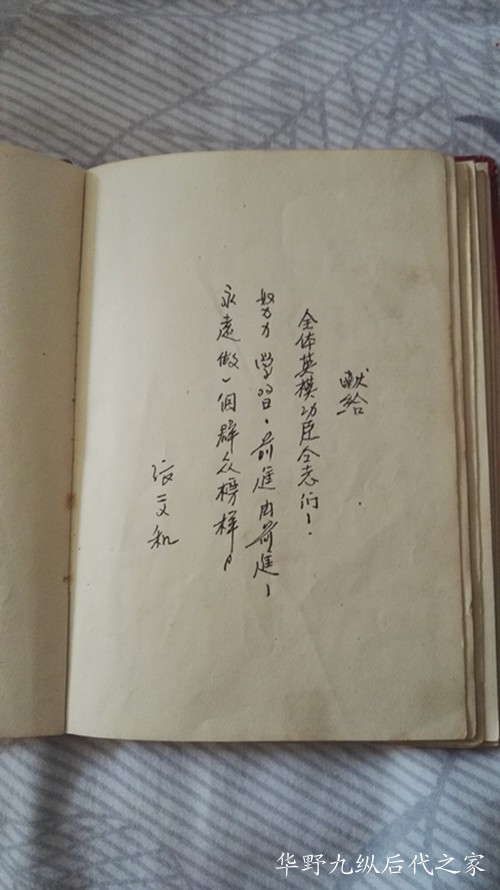 献给
全体英模功臣仝志们！
努力学习，前進再前進！
永遠做一個群众榜样。
张文和
华野九纵后代之家